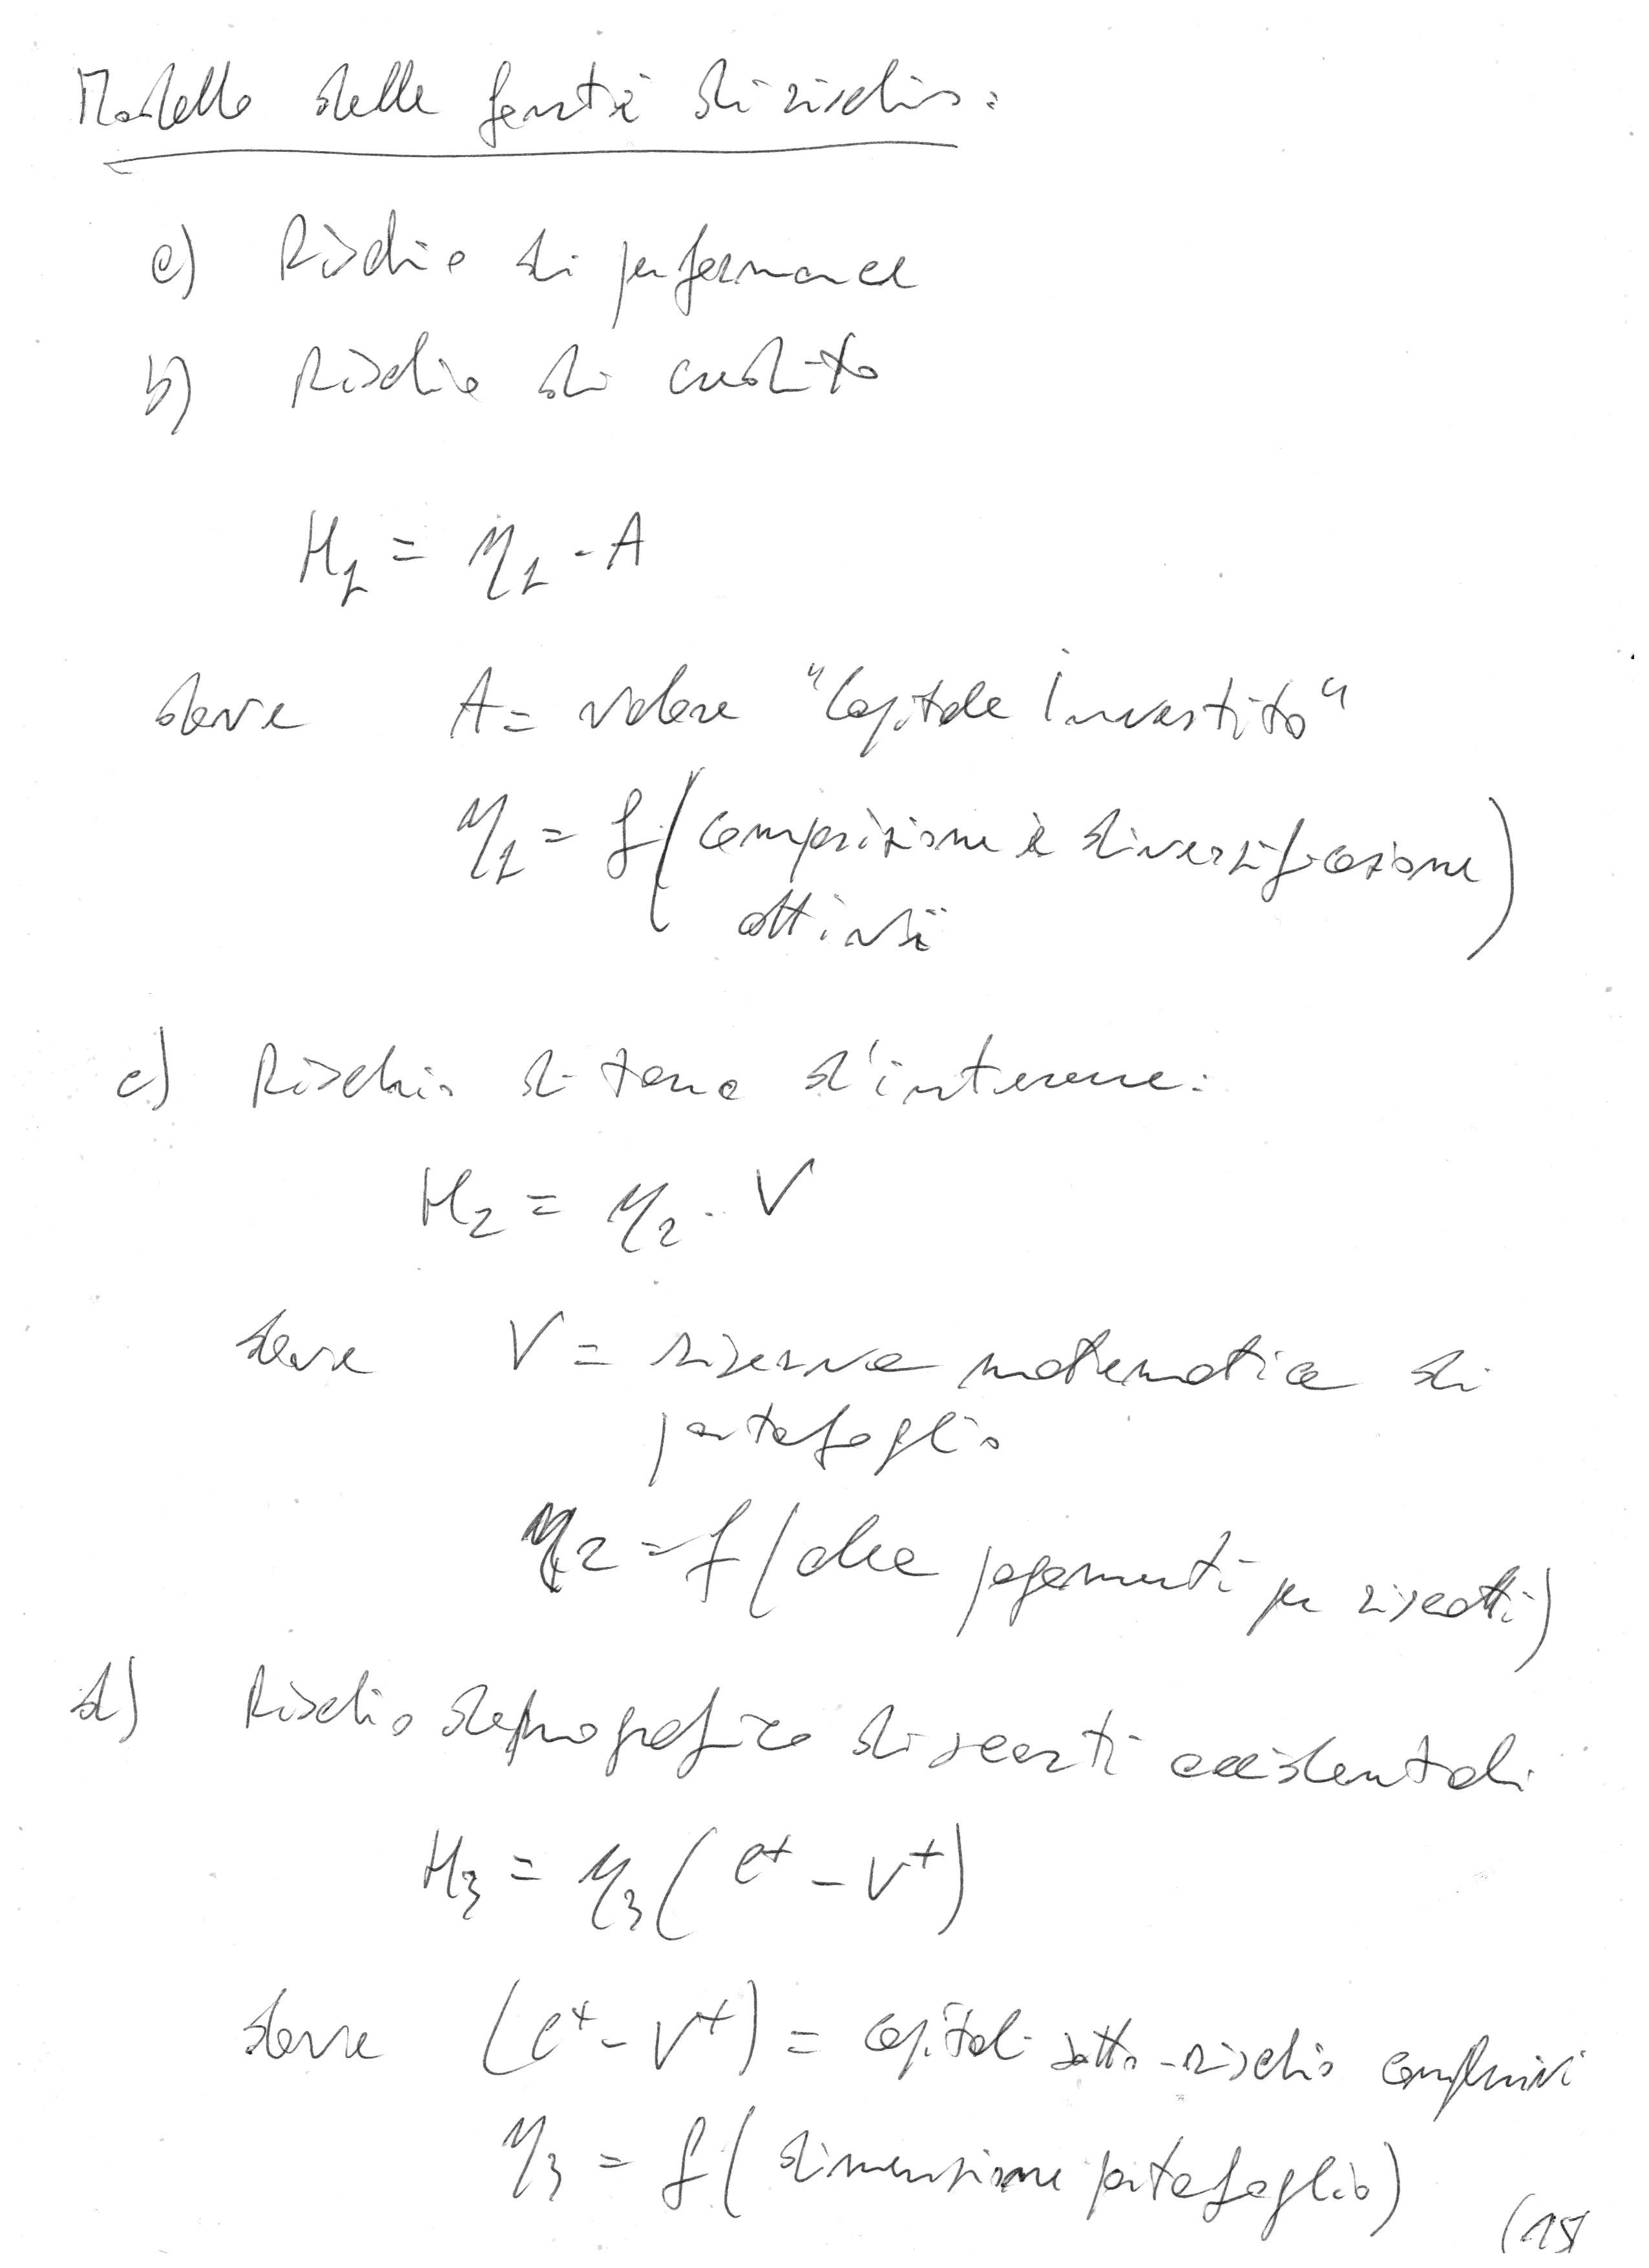 Modello delle fonti di rischio:
a) Rischio di performance
b) Rischio di credito
M₁ = η₁ · A
dove A = valore "Capitale Investito"
η₁ = f (composizione e diversificazione
attività)
c) Rischio di tasso d'interesse:
M₂ = η₂ · V
dove V = riserva matematica di
portafoglio
η₂ = f (alea pagamenti per riscatti)
d) Rischio demografico di scarti accidentali
M₃ = η₃ (C⁺ - V⁺)
dove (C⁺ - V⁺) = capitali sotto-rischio complessivi
η₃ = f (dimensione portafoglio)
(15)